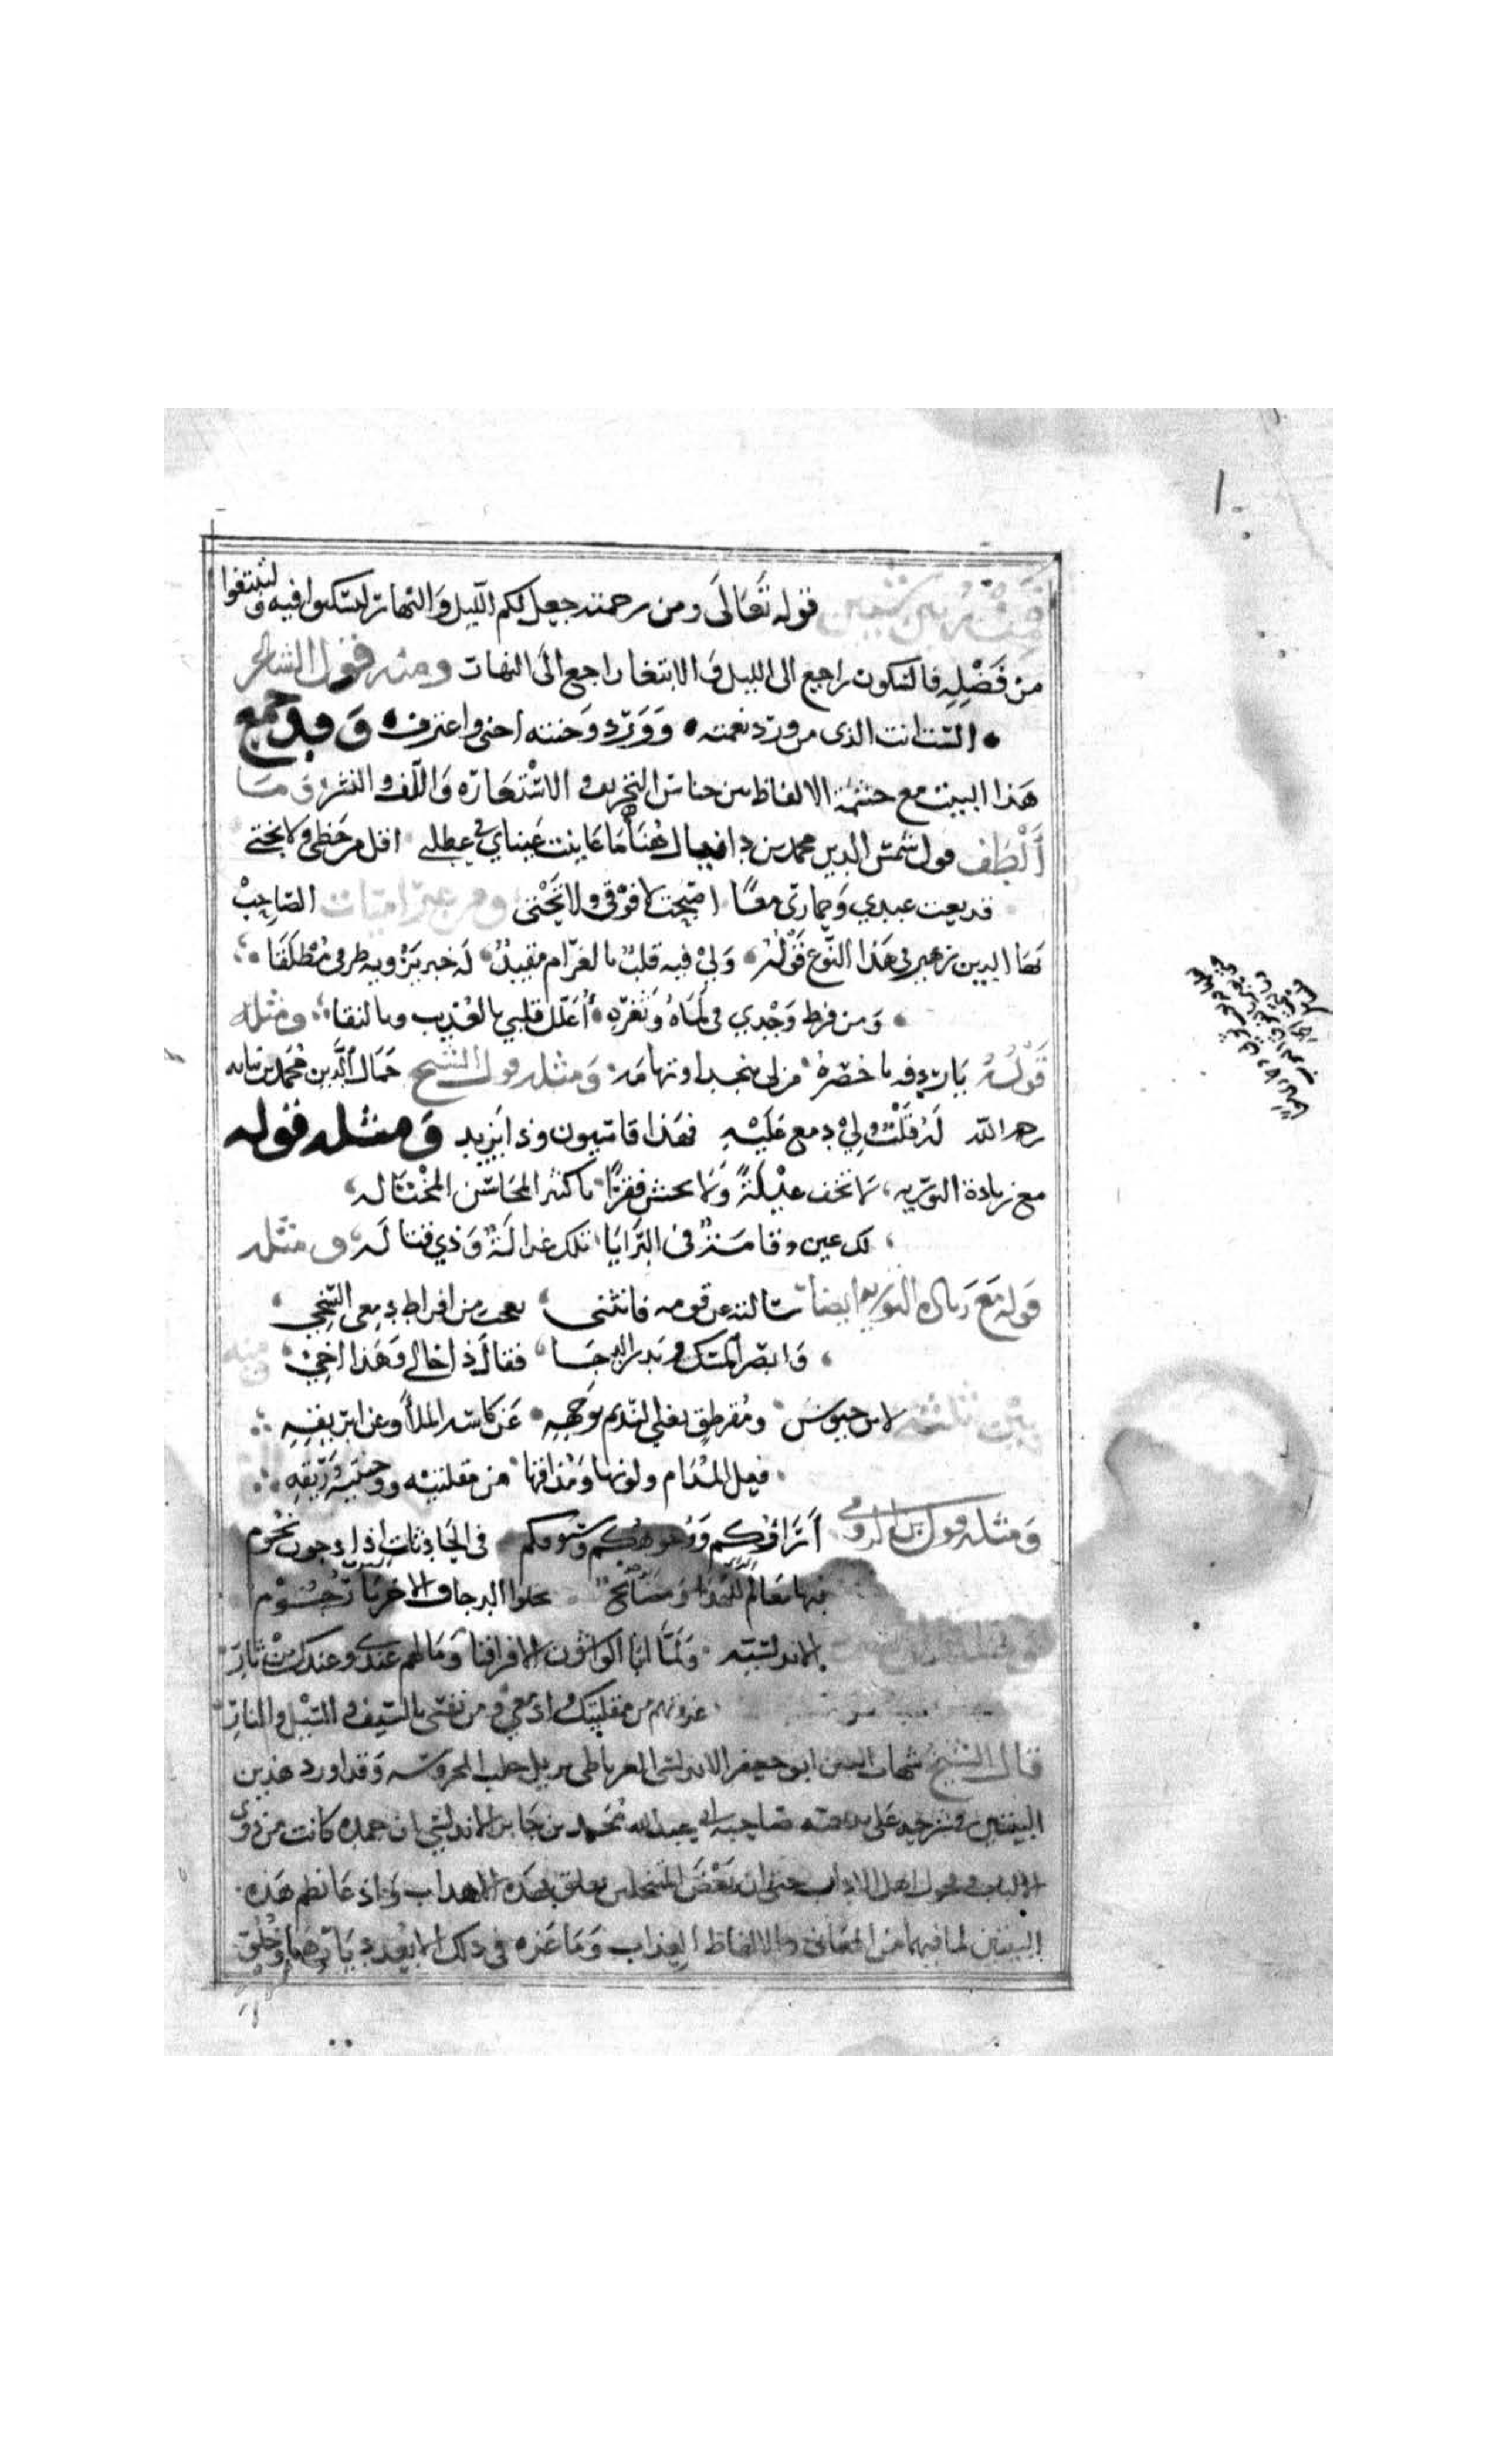 قوله تعالى ومن رحمته جعل لكم الليل والنهار لتسكنوا فيه ولتبتغوا
من فضله فالسكون راجع الى الليل والابتغا راجع الى النهار ومنه قول الشاعر
الست انت الذي من ورد نعمته وورد وجنته اجني واغترف وقد جمع
هذا البيت مع حشمة الالفاظ بين جناس التحريف والاستعاره واللف والنشر وما
ألطف قول شمس الدين محمد بن دانيال ما عاينت عيناي في عطلتي اقل من حظي ولا بختي
قد بعت عبدي وحماري معًا اصبحت لا فوقي ولا تحتي ومن الصاحب
بها الدين زهير في هذا النوع قوله ولي فيه قلب بالغرام مقيد له خبر يرويه طرفي مطلقا
ومن فرط وجدي في لماه وثغره أعلل قلبي بالعذيب وبالنقا ومثله
قوله يا ردفه يا خصره من لي بنجد او تهامه ومثله قول الشيخ جمال الدين محمد بن نباته
رحمه الله لم قلت ولي دمع عليه فهذا قاتيبون وذا يزيد ومثله قوله
مع زيادة التوريه لا تخف عيلة ولا تخش فقرًا يا كثير المحاسن المختاله
لك عين وقامة في البرايا تلك غزالة وذي فتاله ومثله
قوله مع زياده التوريه ايضا سالته عن قومه فانثنى يعجب من افراط دمعي السخي
وابصر المسك وبدر الدجا فقال ذا خالي وهذا اخي ومنه
بين ثلثة لابن حيوس ومقرطق يغني النديم بوجهه عن كاسه الملأ وعن ابريقه
فعل المدام ولونها ومذاقها من مقلتيه ووجنتيه وريقه
ومثله قول ابن الرومي أراؤكم ووجوهكم وسيوفكم في الحادثات اذا دجون نجوم
فيها معالم للهدى ومصابح تجلوا الدجا والاخريات رجوم
الاندلسية ولما ابا الواشون الا فراقنا وما لهم عندي وعندك من ثار
غزوتهم من مقلتيك وادمعي ومن نفسي بالسيف والسيل والنار
قال الشيخ شهاب الدين ابو جعفر الاندلسي الغرناطي نزيل حلب المحروسه وقد اورد هذين
البيتين في شرحه على بديعية صاحبه ابي عبد الله محمد بن جابر الاندلسي ان حمده كانت من ذوي
الالباب وفحول اهل الاداب حتى ان بعض المنتحلين تعلق بهذه الاهداب وادعا نظم هذه
البيتين لما فيهما من المعاني والالفاظ العذاب وما غره في ذلك الا بعد ديارهما وخلو